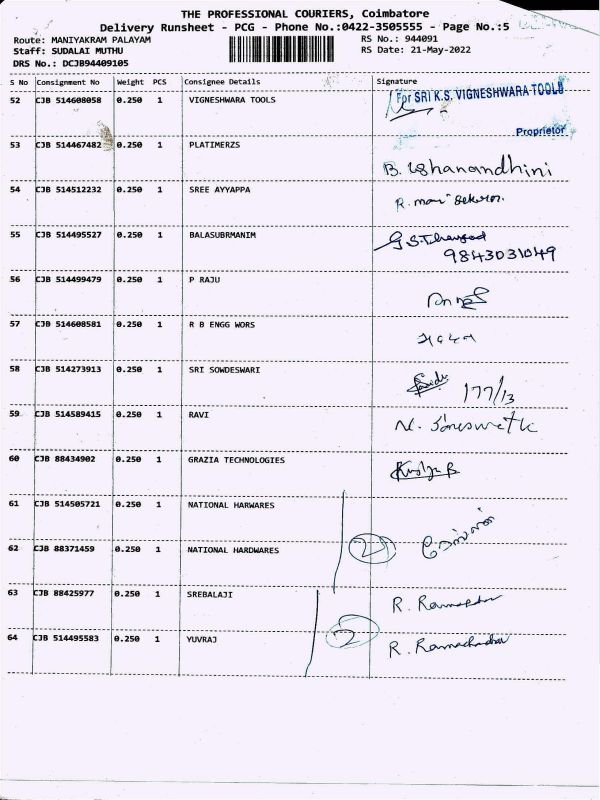 THE PROFESSIONAL COURIERS, Coimbatore
Delivery Runsheet - PCG - Phone No.:0422-3505555 - Page No.:5
Route: MANIYAKRAM PALAYAM
RS No.: 944091
Staff: SUDALAI MUTHU
RS Date: 21-May-2022
DRS No.: DCJB94409105
S No Consignment No Weight PCS Consignee Details Signature
52 CJB 514608058 0.250 1 VIGNESHWARA TOOLS For SRI K.S. VIGNESHWARA TOOLS
Proprietor
53 CJB 514467482 0.250 1 PLATIMERZS
B. Ushanandhini
54 CJB 514512232 0.250 1 SREE AYYAPPA
R.
55 CJB 514495527 0.250 1 BALASUBRMANIM
9843031049
56 CJB 514499479 0.250 1 P RAJU
57 CJB 514608581 0.250 1 R B ENGG WORS
58 CJB 514273913 0.250 1 SRI SOWDESWARI
177/13
59 CJB 514589415 0.250 1 RAVI
60 CJB 88434902 0.250 1 GRAZIA TECHNOLOGIES
61 CJB 514505721 0.250 1 NATIONAL HARWARES
62 CJB 88371459 0.250 1 NATIONAL HARDWARES 2
63 CJB 88425977 0.250 1 SREBALAJI
R.
64 CJB 514495583 0.250 1 YUVRAJ 2 R. Ramachandran